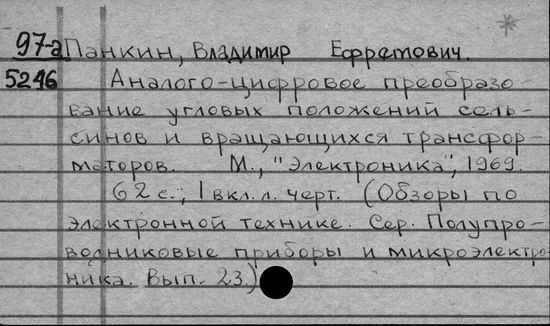 97-а Панкин, Владимир Ефремович.
5246 Аналого-цифровое преобразо-
вание угловых положений сель-
синов и вращающихся трансфор-
маторов. М., "Электроника", 1969.
62 с.; 1 вкл. л. черт. (Обзоры по
электронной технике. Сер. Полупро-
водниковые приборы и микроэлектро-
ника. Вып. 23.)